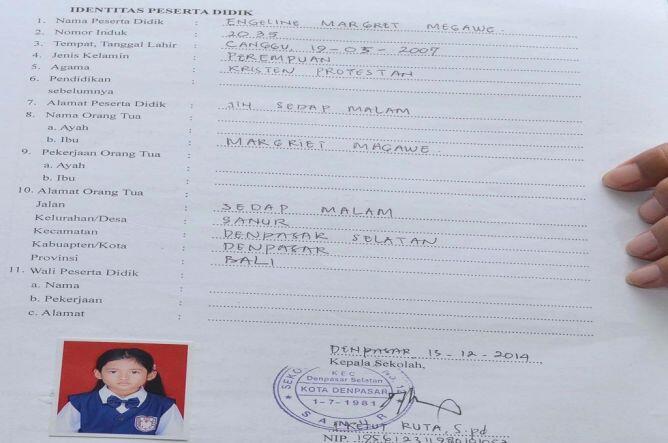 IDENTITAS PESERTA DIDIK
1. Nama Peserta Didik : ENGELINE MARGRET MEGAWE.
2. Nomor Induk : 2035
3. Tempat, Tanggal Lahir : CANGGU, 19-05-2007
4. Jenis Kelamin : PEREMPUAN
5. Agama : KRISTEN PROTESTAN
6. Pendidikan :
sebelumnya
7. Alamat Peserta Didik : JLH SEDAP MALAM
8. Nama Orang Tua :
a. Ayah :
b. Ibu : MARGRIET MAGAWE.
9. Pekerjaan Orang Tua :
a. Ayah :
b. Ibu :
10. Alamat Orang Tua :
Jalan : SEDAP MALAM
Kelurahan/Desa : SANUR
Kecamatan : DENPASAR SELATAN
Kabuapten/Kota : DENPASAR
Provinsi : BALI
11. Wali Peserta Didik :
a. Nama :
b. Pekerjaan :
c. Alamat :
DENPASAR, 15-12-2014
Kepala Sekolah,
KEC
Denpasar Selatan
KOTA DENPASAR
1-7-1981
SANUR
KETUT RUTA, S.pd
NIP.